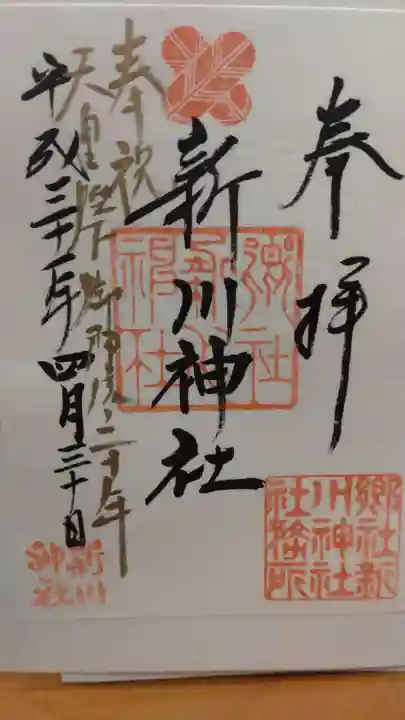 奉拝
新川神社
奉祝
天皇陛下御即位三十年
平成三十一年四月三十日
郷社新川神社
郷社新川神社社務所
新川神社